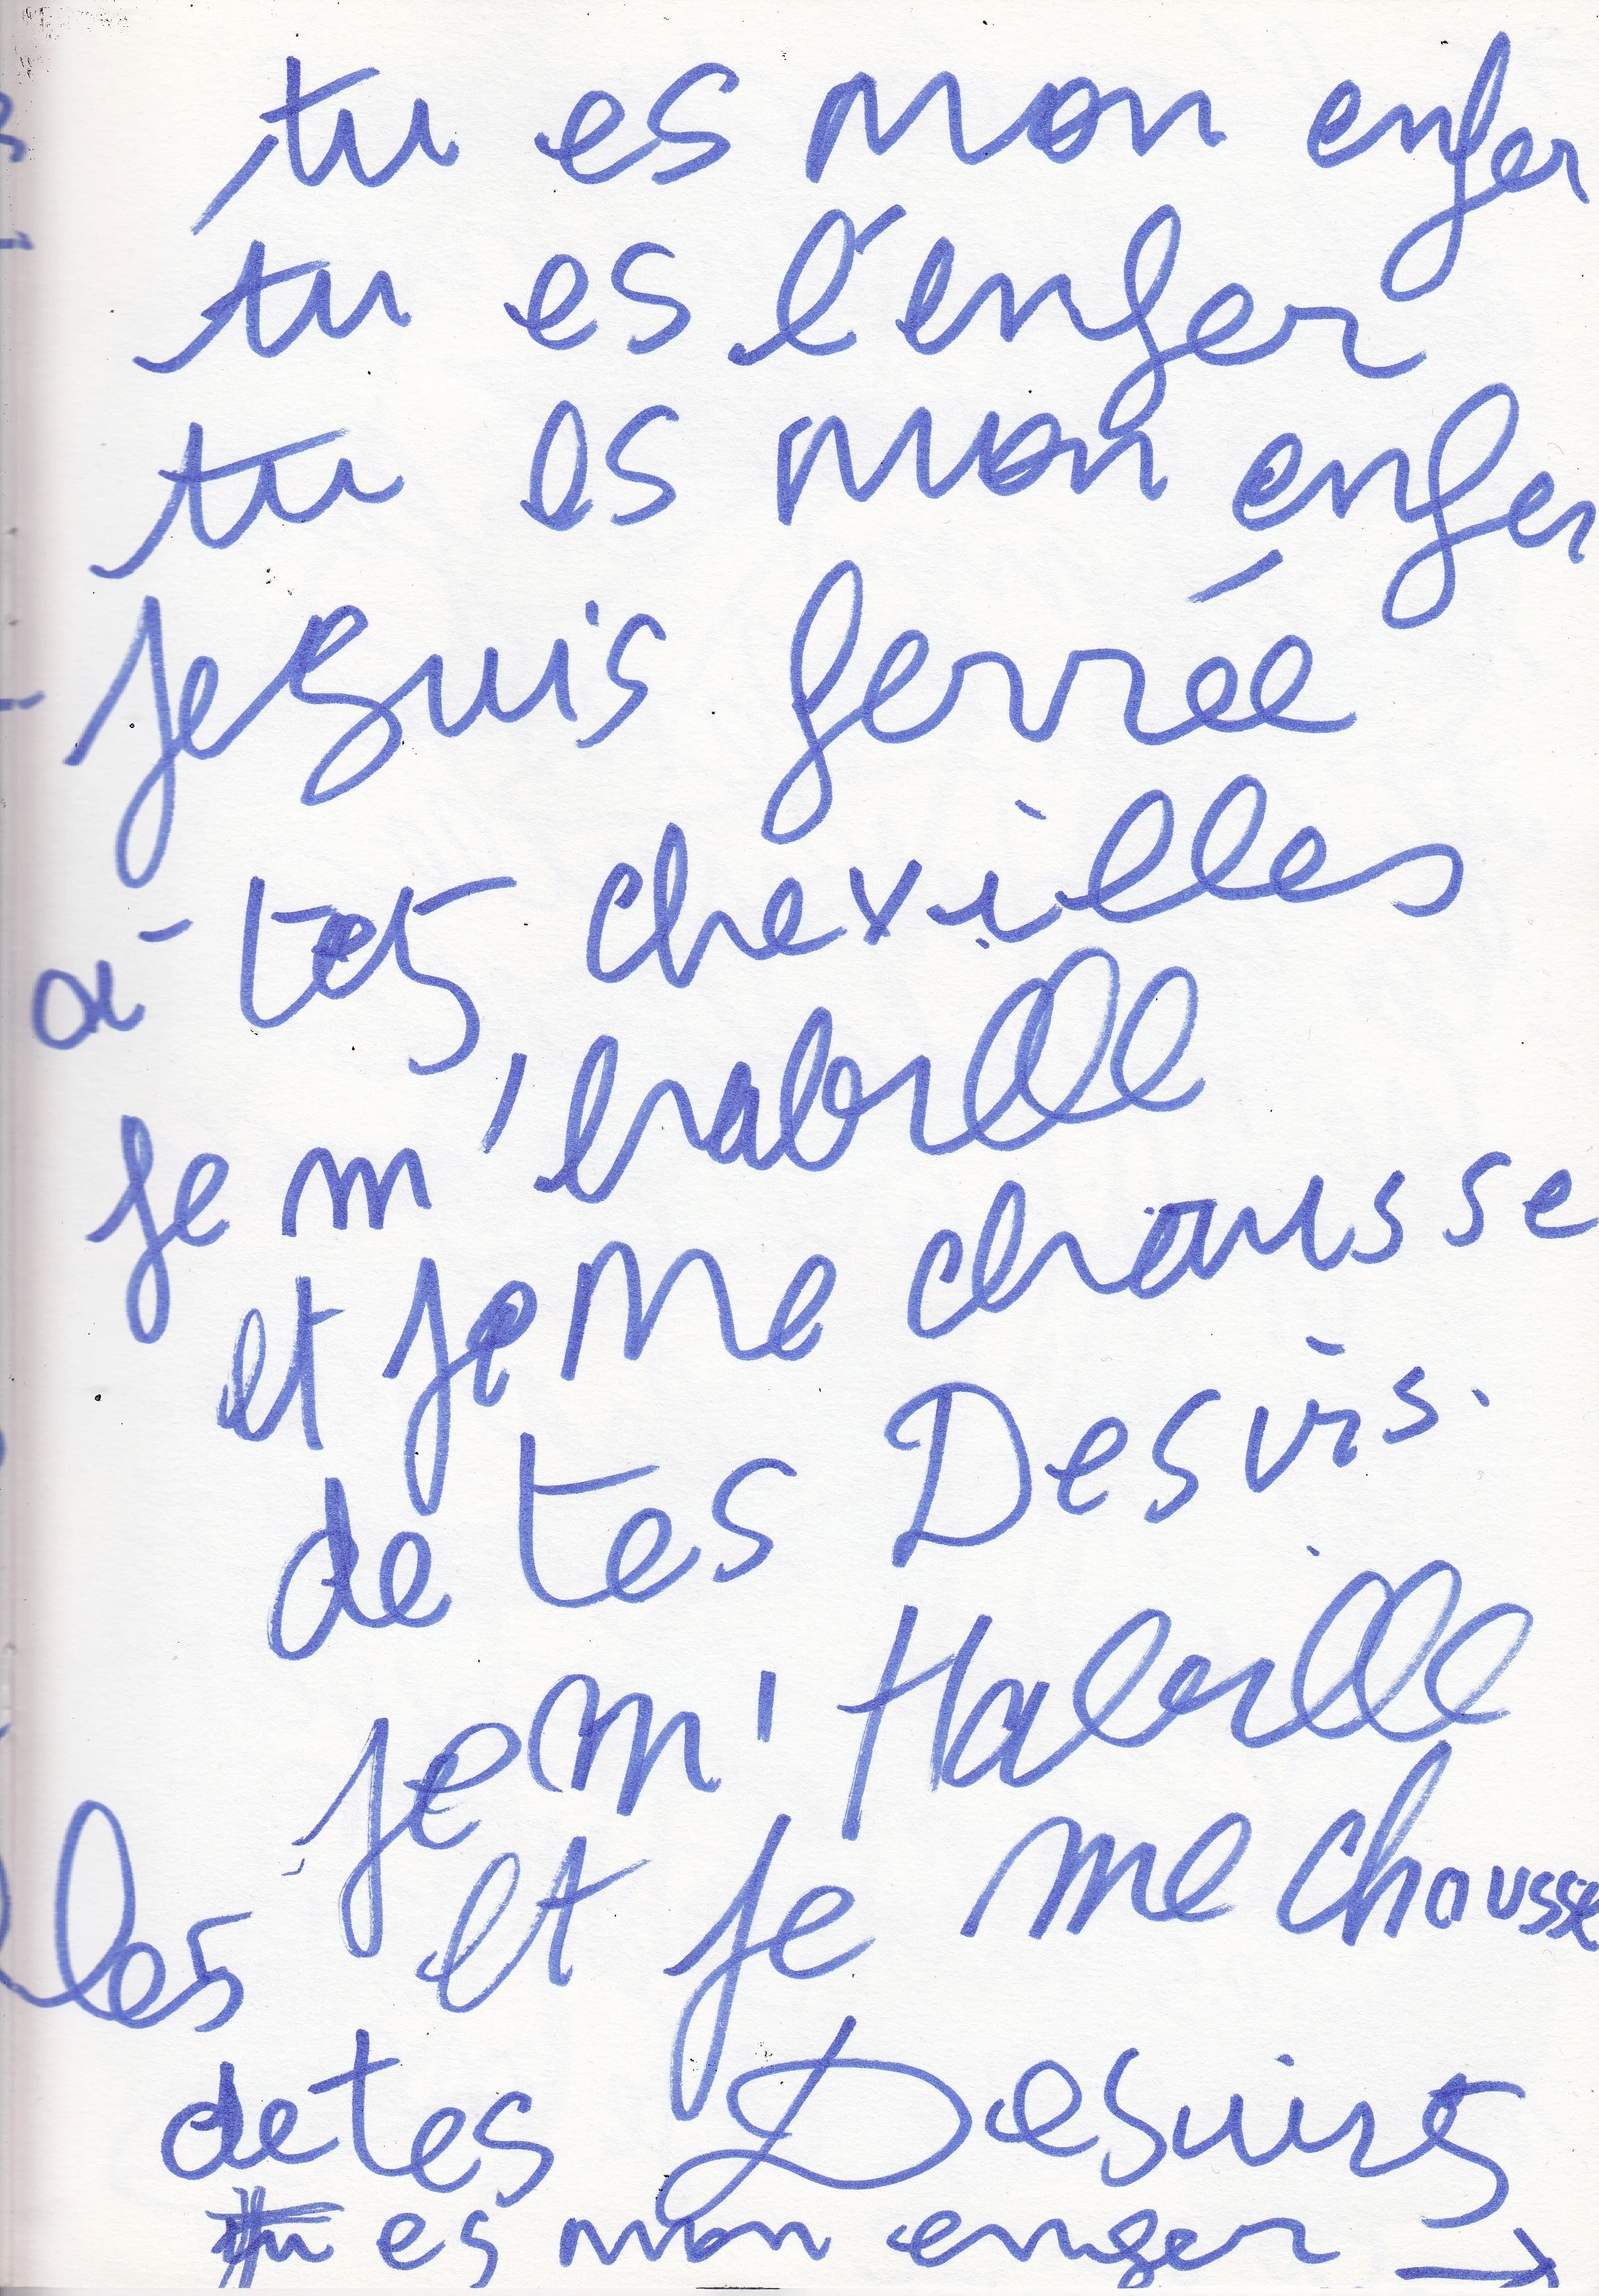 tu es mon enfer
tu es l'enfer
tu es mon enfer
je suis ferrée
à tes chevilles
je m'habille
et je me chausse
de tes Desirs.
je m'Habille
et je me chausse
les
de tes Desirs
tu es mon enfer →